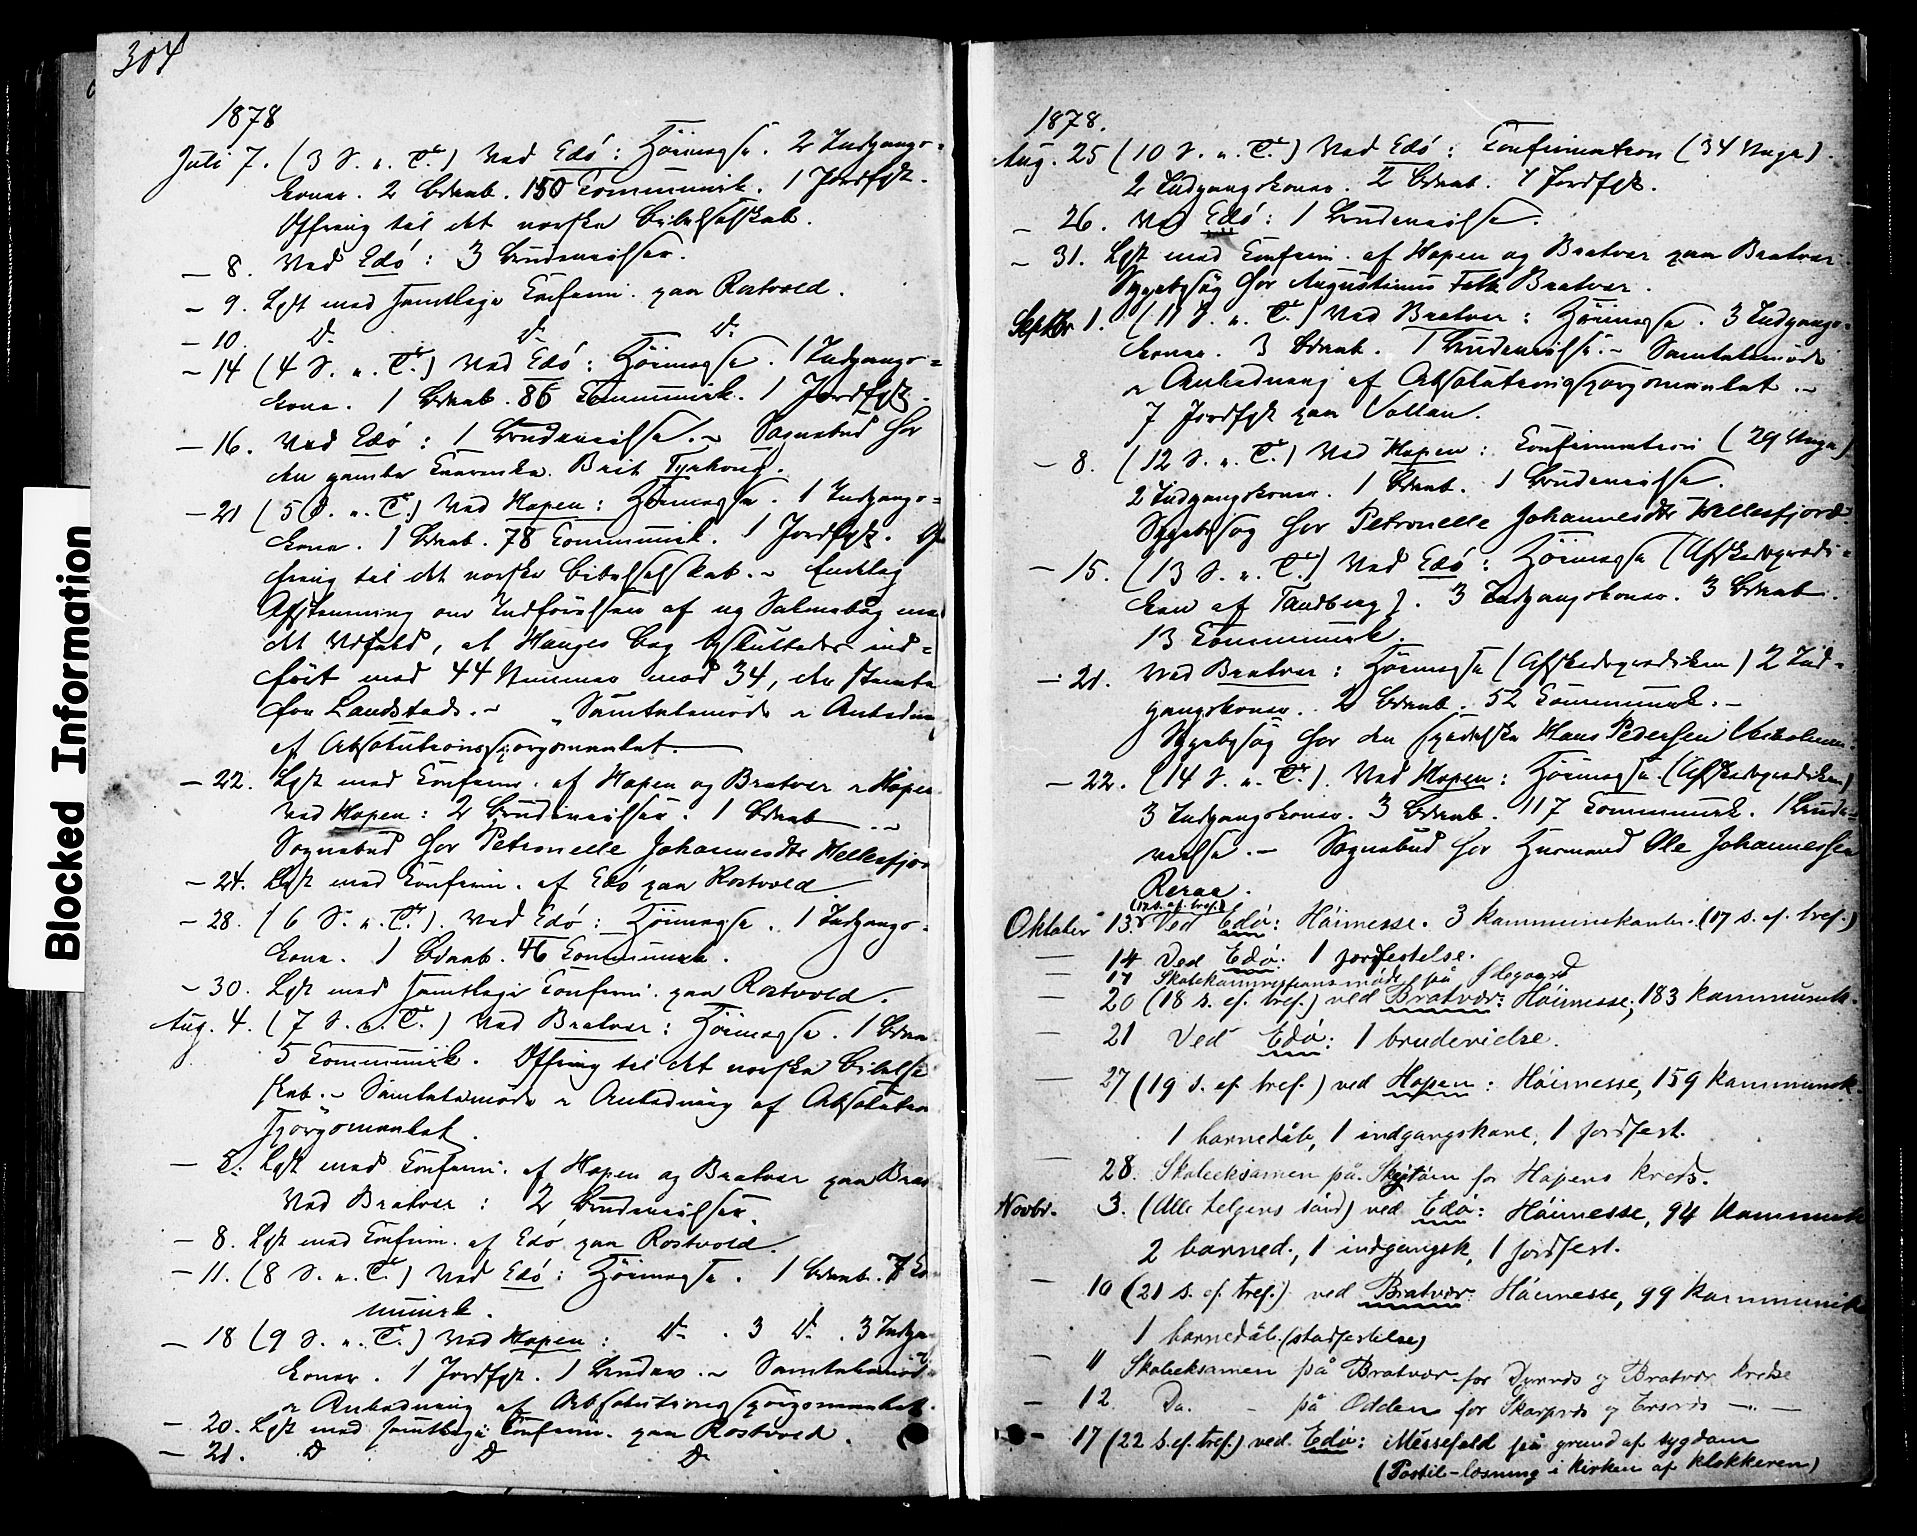 304
1878
Juli 7. (3 S. e. Tr.) Ved Edö: Höimesse. 2 Indgangs-
koner. 2 Börneb. 150 Communik. 1 Jordfst.
Offring til det norske Bibelselskab.
— 8. Ved Edö: 3 Brudevielser.
— 9. Læst med samtlige Confirm. paa Rostvold.
— 10. Do Do Do
— 14 (4 S. e. Tr.) Ved Edö: Höimesse. 1 Indgangs-
kone. 1 Barneb. 86 Communik. 1 Jordfst.
— 16. Ved Edö: 1 Brudevielse. – Sognebud hos
den gamle Brit Tyrhoug.
— 21 (5 S. e. Tr.) Ved Hopen: Höimesse. 1 Indgangs-
kone. 1 Barneb. 78 Communik. 1 Jordfst. Of-
fring til det norske Bibelselskab. – Endelig
Afstemning om Indförelsen af ny Salmebog med
det Udfald, at Hauges Bog besluttedes ind-
fört med 44 Stemmer mod 34, der stemte
for Landstads. – Samtalemöde i Anledning
af Absolutionsspörgsmaalet.
— 22. Læst med Confirm. af Hopen og Bratvær i Hopen
Ved Hopen: 2 Brudevielser. 1 Barneb. –
Sognebud hos Petronelle Johannesdtr Hellesfjor
— 24. Læst med Confirm. af Edö paa Rostvold
— 28. (6 S. e. Tr.). Ved Edö: Höimesse. 1 Indgangs-
kone. 1 Barneb. 46 Communik.
— 30. Læst med samtlige Confirm. paa Rostvold.
Aug. 4. (7 S. e. Tr.) Ved Bratvær: Höimesse. 1 Barneb
5 Communik. Offring til det norske Bibelsel
skab. – Samtalemöde i Anledning af Absolution
spörgsmaalet.
Læst med Confirm. af Hopen og Bratvær paa Brat
Ved Bratvær: 2 Brudevielser.
— 8. Læst med Confirm. af Edö paa Rostvold.
— 11. (8 S. e. Tr.) Ved Edö: Höimesse. 1 Barneb. 7 Co
munik.
— 18 (9 S. e. Tr.) Ved Hopen: Do. 3 Do. 3 Indga
koner. 1 Jordfst. 1 Brudev. – Samtalemöde
i Anledning af Absolutionsspörgsmaalet.
— 20. Læst med samtlige Confirm. paa Rostvold.
— 21. Do Do Do
1878.
Aug. 25 (10 S. e. Tr.) Ved Edö: Confirmation (34 Unge).
2 Indgangskoner. 2 Barneb. 1 Jordfst.
— 26. Ved Edö: 1 Brudevielse.
— 31. Læst med Confirm. af Hopen og Bratvær paa Bratvær
Sygebesög hos Augustinus Falk Bratvær.
Septbr 1. (11 S. e. Tr.) Ved Bratvær: Höimesse. 3 Indgangs-
koner. 3 Barneb. 1 Brudevielse. – Samtalemöde
i Anledning af Absolutionsspörgsmaalet. –
7 Jordfst paa Vollan.
— 8. (12 S. e. Tr.) Ved Hopen: Confirmation (29 Unge)
2 Indgangskoner. 1 Barneb. 1 Brudevielse.
Sygebesög hos Petronelle Johannesdtr Hellesfjord.
— 15. (13 S. e. Tr.) Ved Edö: Höimesse (Afskedsprædi-
ken af Tandberg). 3 Indgangskoner. 3 Barneb.
13 Communik.
— 21. Ved Bratvær: Höimesse (Afskedsprædiken) 2 Ind-
gangskoner. 2 Barneb. 52 Communik. –
Sygebesög hos den spedalske Hans Pedersen
— 22. (14 S. e. Tr.). Ved Hopen: Höimesse. (Afskedsprædiken)
3 Indgangskoner. 3 Barneb. 117 Communik. 1 Brude-
vielse. – Sognebud hos Husmand Ole Johannessen
Raraa.
(17 s. ef. tref.)
Oktober 13. Ved Edö: Höimesse. 3 kommunikanter. (17 s. ef. tref.)
— 14 Ved Edö: 1 jordfestelse.
17 Skolekommissionsmöde på Ödegaard
— 20 (18 s. ef. tref.) ved Bratvær: Höimesse; 183 kommunik.
— 21 Ved Edö: 1 brudevielse.
— 27 (19 s. ef. tref.) ved Hopen: Höimesse, 159 kommunik.
1 barnedåb, 1 indgangskone, 1 jordfest.
— 28. Skoleeksamen på for Hopens kreds.
Novbr. 3. (Alle helgens sönd) ved Edö: Höimesse, 94 kommunik
2 barned., 1 indgangsk, 1 jordfest.
— 10 (21 s. ef. tref.) ved Bratvær: Höimesse, 99 kommunik
1 barnedåb. (stadfestelse)
— 11 Skoleeksamen på Bratvær for og Bratvær kredse
— 12. Do. – på Odden for og – –
— 17 (22 s. ef. tref.) ved Edö: Messefald på grund af sygdom
(Postil-læsning i kirken af klokkeren)
Blocked Information